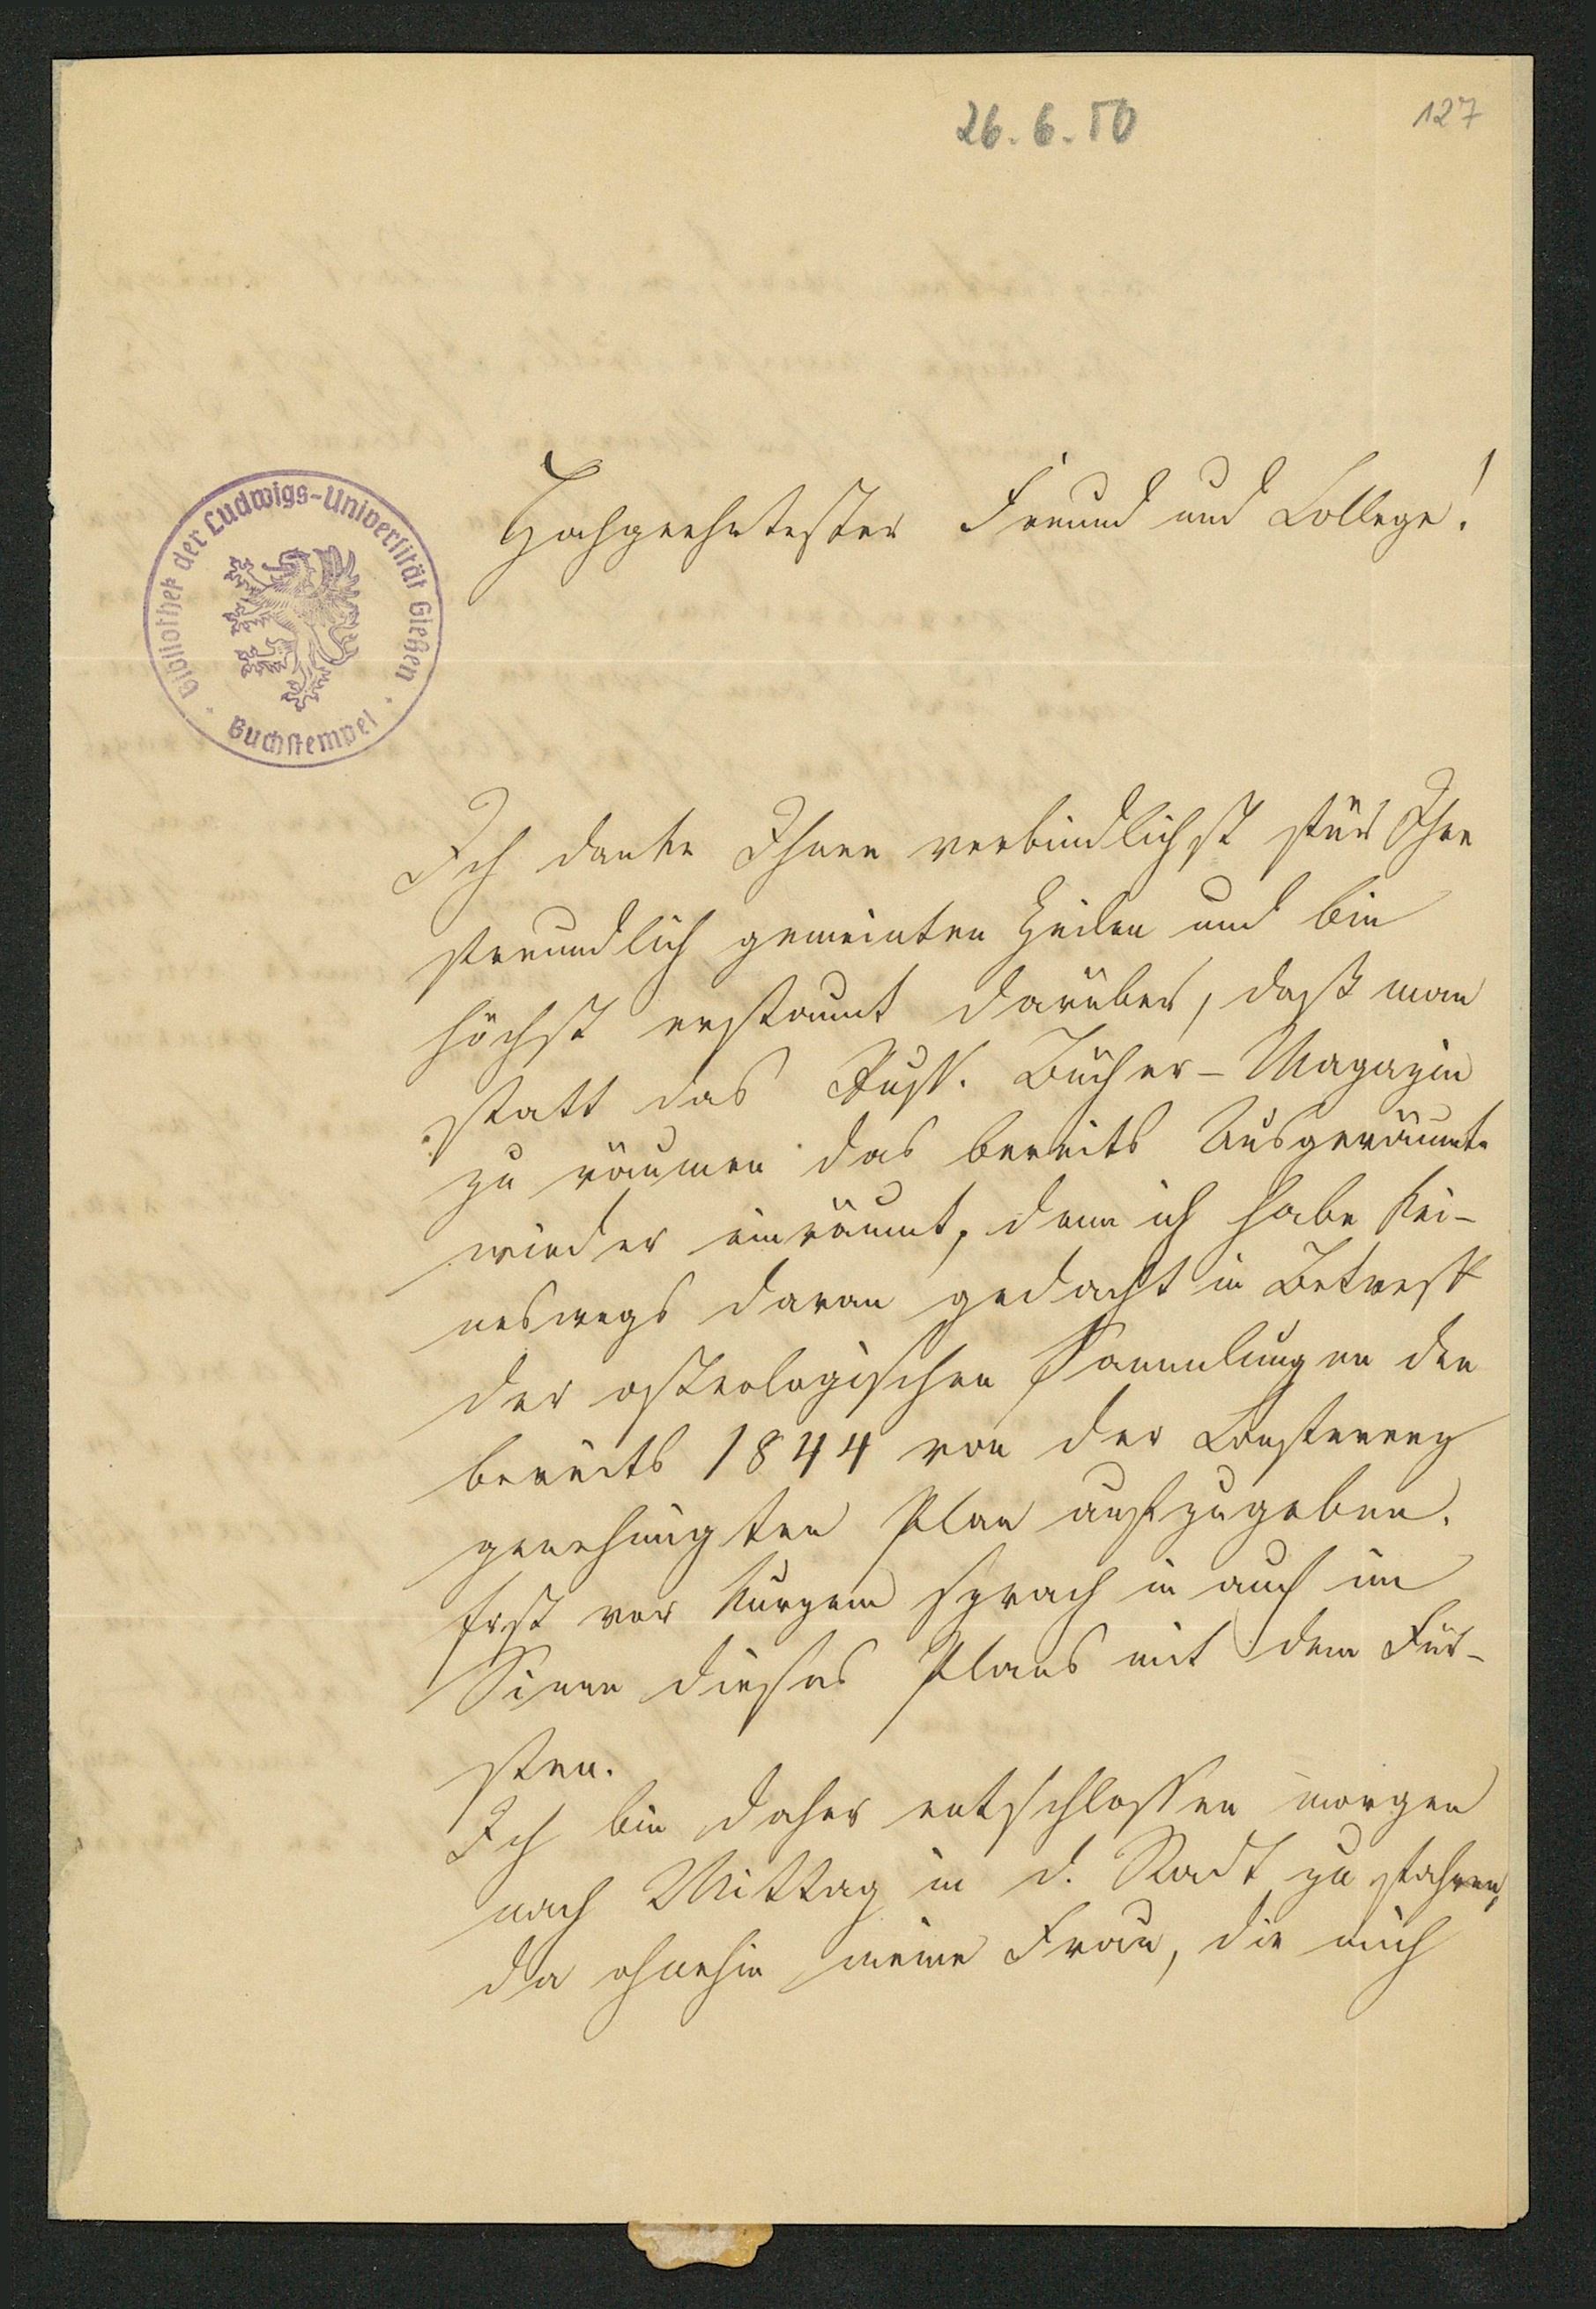 26. 6. 50
127
Bibliothek der Ludwigs-Universität Gießen
Buchstempel
Hochgeehrtester Freund und College!
Ich danke Ihnen verbindlichst für Ihre
freundlich gemeinten Zeilen und bin
höchst erstaunt darüber, daß man
statt das Russ. Bücher-Magazin
zu räumen das bereits Ausgeräumte
wieder einräumt, denn ich habe kei-
neswegs daran gedacht in Betreff
der osteologischen Sammlungen den
bereits 1844 von der
genehmigten Plan aufzugeben.
Erst vor Kurzem sprach ich auch im
Sinne dieses Plans mit dem Für-
sten.
Ich bin daher entschlossen morgen
nach Mittag in d. Stadt zu fahren,
da ohnehin meine Frau, die mich